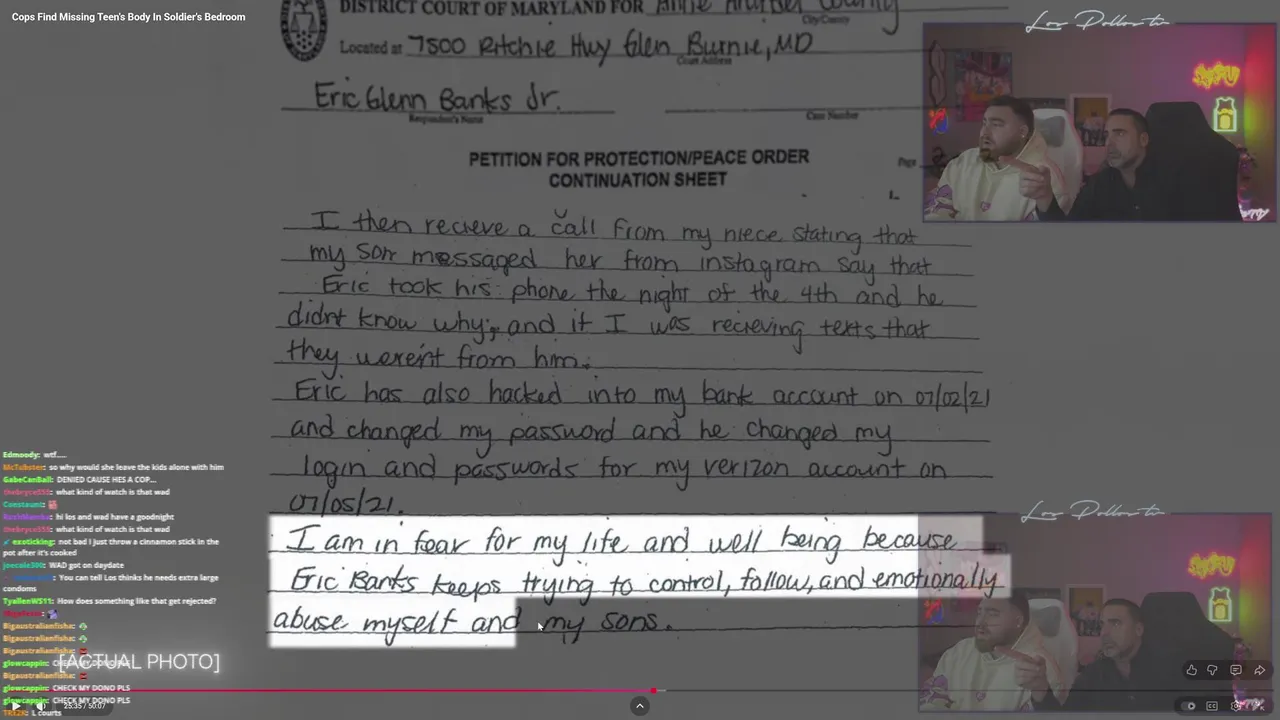 Cops Find Missing Teen's Body In Soldier's Bedroom
DISTRICT COURT OF MARYLAND FOR Anne Arundel County
City/County
Located at 7500 Ritchie Hwy Glen Burnie, MD
Court Address
Eric Glenn Banks Jr.
Respondent's Name
Case Number
PETITION FOR PROTECTION/PEACE ORDER
CONTINUATION SHEET
Page
I then recieve a call from my niece stating that
my son messaged her from instagram say that
Eric took his phone the night of the 4th and he
didnt know why; and if I was recieving texts that
they weren't from him.
Eric has also hacked into my bank account on 07/02/21
and changed my password and he changed my
login and passwords for my verizon account on
07/05/21.
I am in fear for my life and well being because
Eric Banks keeps trying to control, follow, and emotionally
abuse myself and my sons.
Los Pollos tv
Los Pollos tv
Edmoody: wtf.....
McTubster: so why would she leave the kids alone with him
GabeCanBall: DENIED CAUSE HES A COP...
thebryce555: what kind of watch is that wad
Constaunt:
hi los and wad have a goodnight
thebryce555: what kind of watch is that wad
exoticking: not bad I just throw a cinnamon stick in the
pot after it's cooked
joecole300: WAD got on daydate
You can tell Los thinks he needs extra large
condoms
TyallenWS11: How does something like that get rejected?
Bigaustralianfisha:
Bigaustralianfisha:
Bigaustralianfisha:
glowcappin: CHECK MY DONO PLS
Bigaustralianfisha:
glowcappin: CHECK MY DONO PLS
glowcappin: CHECK MY DONO PLS
L courts
[ACTUAL PHOTO]
25:35 / 50:07